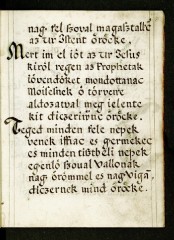 nag fel szoual magasztalhẽ
az vr Istent öröcke.
Mert im el iöt az vr Iesus
kiröl regen az Prophetak
iövendöket mondottanac
Moisesnek ö törvenÿ
aldozatval meg ielente
kit diczerivne öröcke.
Teged minden fele nepek
venek iffiac es germekec
es minden tisztbeli nepek
egenlö szoual vallonak
nag örömmel es nag vigã
diczernek mind öröcke.